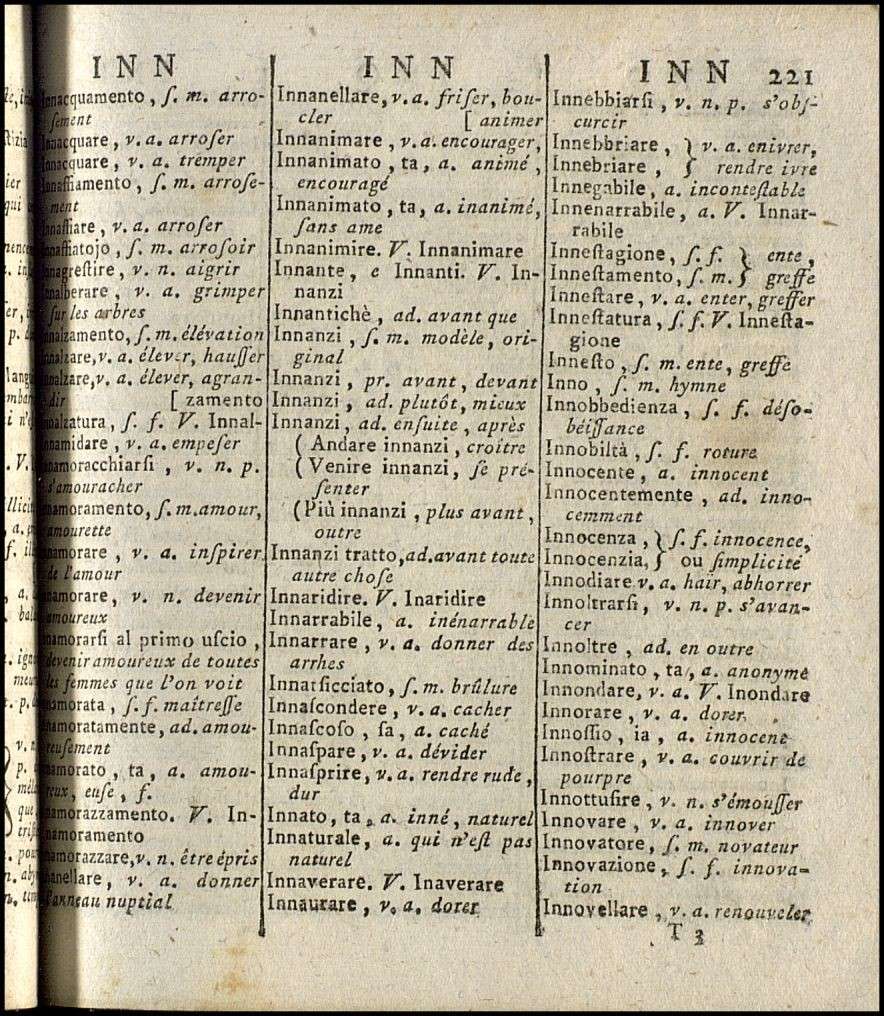 INN
Innacquamento, ſ. m. arro-
ſement
Innacquare, v. a. arroſer
Innacquare, v. a. tremper
Innaffiamento, ſ. m. arroſe-
ment
Innaffiare, v. a. arroſer
Innaffiatojo, ſ. m. arroſoir
Innagreſtire, v. n. aigrir
Innalberare, v. a. grimper
ſur les arbres
Innalzamento, ſ. m. élévation
Innalzare, v. a. élever, hauſſer
Innalzare, v. a. élever, agran-
dir [ zamento
Innalzatura, ſ. f. V. Innal-
Innamidare, v. a. empeſer
Innamoracchiarſi, v. n. p.
s'amouracher
Innamoramento, ſ. m. amour,
amourette
Innamorare, v. a. inſpirer
de l'amour
Innamorare, v. n. devenir
amoureux
Innamorarſi al primo uſcio,
devenir amoureux de toutes
les femmes que l'on voit
Innamorata, ſ. f. maîtreſſe
Innamoratamente, ad. amou-
reuſement
Innamorato, ta, a. amou-
reux, euſe, f.
Innamorazzamento. V. In-
namoramento
Innamorazzare, v. n. être épris
Innanellare, v. a. donner
l'anneau nuptial
INN
Innanellare, v. a. friſer, bou-
cler [ animer
Innanimare, v. a. encourager,
Innanimato, ta, a. animé,
encouragé
Innanimato, ta, a. inanimé,
ſans ame
Innanimire. V. Innanimare
Innante, e Innanti. V. In-
nanzi
Innantichè, ad. avant que
Innanzi, ſ. m. modèle, ori-
ginal
Innanzi, pr. avant, devant
Innanzi, ad. plutôt, mieux
Innanzi, ad. enſuite, après
( Andare innanzi, croître
( Venire innanzi, ſe pré-
ſenter
( Più innanzi, plus avant,
outre
Innanzi tratto, ad. avant toute
autre choſe
Innaridire. V. Inaridire
Innarrabile, a. inénarrable
Innarrare, v. a. donner des
arrhes
Innarſicciato, ſ. m. brûlure
Innaſcondere, v. a. cacher
Innaſcoſo, ſa, a. caché
Innaſpare, v. a. dévider
Innaſprire, v. a. rendre rude,
dur
Innato, ta, a. inné, naturel
Innaturale, a. qui n'eſt pas
naturel
Innaverare. V. Inaverare
Innaurare, v. a. dorer
INN 221
Innebbiarſi, v. n. p. s'obſ-
curcir
Innebbriare, } v. a. enivrer,
Innebriare, } rendre ivre
Innegabile, a. inconteſtable
Innenarrabile, a. V. Innar-
rabile
Inneſtagione, ſ. f. } ente,
Inneſtamento, ſ. m. } greffe
Inneſtare, v. a. enter, greffer
Inneſtatura, ſ. f. V. Inneſta-
gione
Inneſto, ſ. m. ente, greffe
Inno, ſ. m. hymne
Innobbedienza, ſ. f. déſo-
béiſſance
Innobiltà, ſ. f. roture
Innocente, a. innocent
Innocentemente, ad. inno-
cemment
Innocenza, } ſ. f. innocence,
Innocenzia, } ou ſimplicité
Innodiare v. a. haïr, abhorrer
Innoltrarſi, v. n. p. s'avan-
cer
Innoltre, ad. en outre
Innominato, ta, a. anonyme
Innondare, v. a. V. Inondare
Innorare, v. a. dorer
Innoſſio, ia, a. innocent
Innoſtrare, v. a. couvrir de
pourpre
Innottuſire, v. n. s'émouſſer
Innovare, v. a. innover
Innovatore, ſ. m. novateur
Innovazione, ſ. f. innova-
tion
Innovellare, v. a. renouveler
T 3